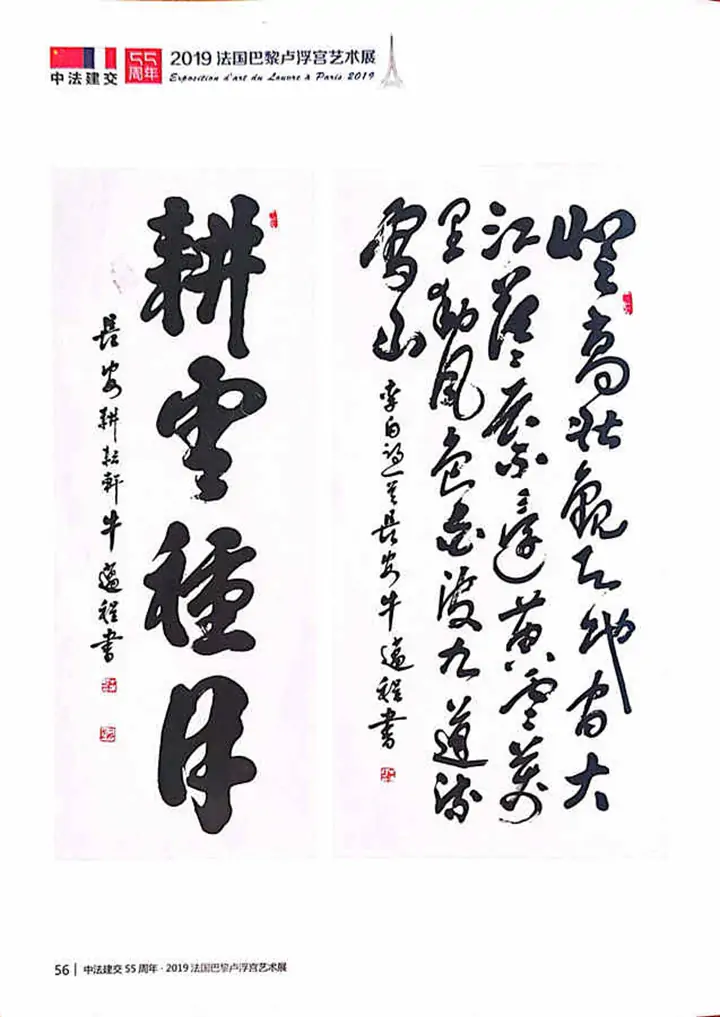 中法建交
55
周年
2019 法国巴黎卢浮宫艺术展
Exposition d'art du Louvre à Paris 2019
登高壮觀天地間大
江茫茫去不還黄雲萬
里動風色白波九道流
雪山
李白詩一首長安牛遥程書
耕雲種月
長安耕耘軒牛遥程書
56 | 中法建交 55 周年 · 2019 法国巴黎卢浮宫艺术展